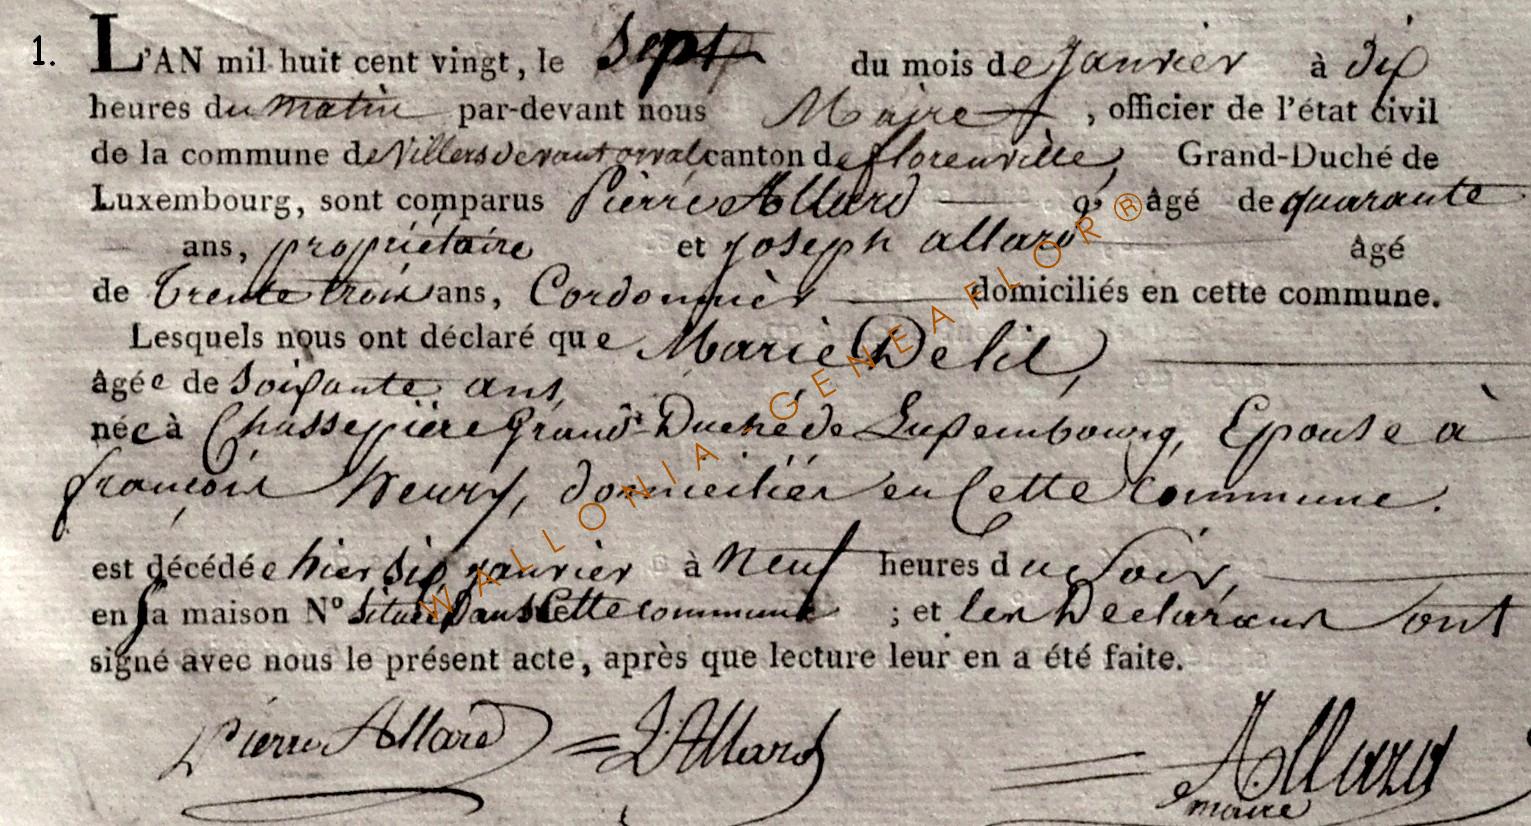 1. L'AN mil huit cent vingt, le Sept du mois de Janvier à dix
heures du matin par-devant nous Maire , officier de l'état civil
de la commune de Villers devant orval canton de florenville, Grand-Duché de
Luxembourg, sont comparus Pierre Allard âgé de quarante
ans, propriétaire et Joseph allard âgé
de Trente trois ans, Cordonnier domiciliés en cette commune.
Lesquels nous ont déclaré que Marie Delil,
âgée de soixante ans,
née à Chassepière Grand-Duché de Luxembourg, Epouse à
françois henry, domicilier en Cette Commune.
est décédée hier six janvier à neuf heures du Soir,
en sa maison N° située dans Cette commune ; et les Declarans ont
signé avec nous le présent acte, après que lecture leur en a été faite.
Pierre Allard J. Allard Allard
maire
WALLONIA GENEAFLOR®